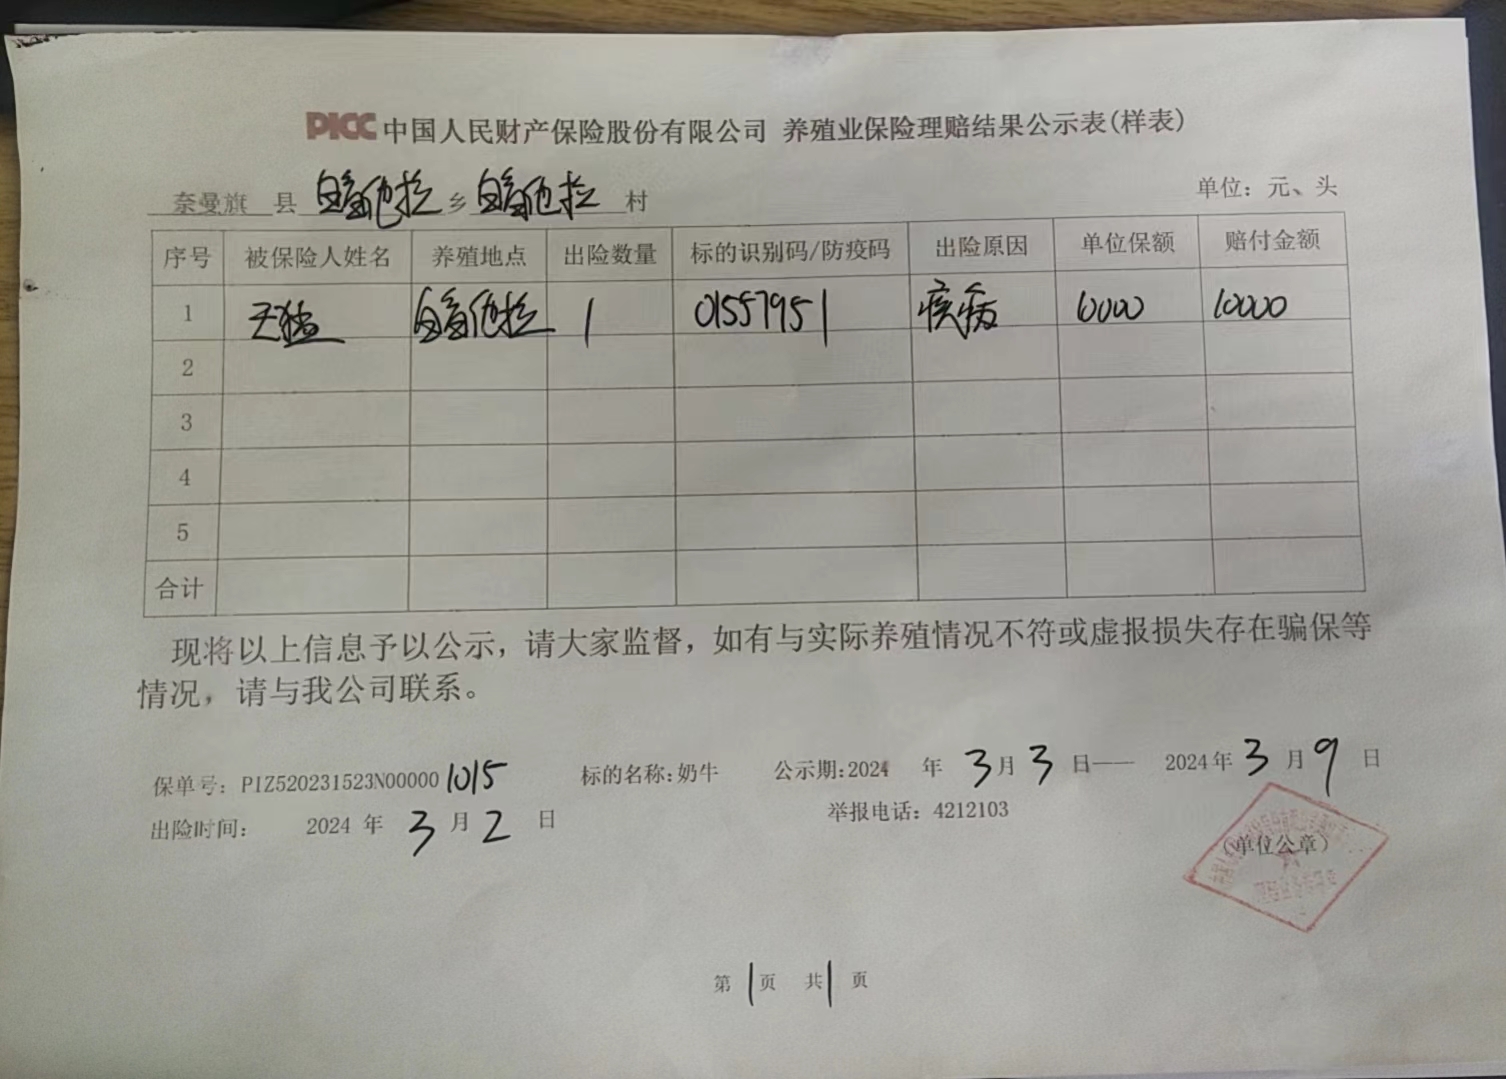 PICC 中国人民财产保险股份有限公司 养殖业保险理赔结果公示表(样表)
奈曼旗 县 白音他拉 乡 白音他拉 村 单位：元、头
序号 被保险人姓名 养殖地点 出险数量 标的识别码/防疫码 出险原因 单位保额 赔付金额
1 王 白音他拉 1 01557951 疾病 10000 10000
2
3
4
5
合计
现将以上信息予以公示，请大家监督，如有与实际养殖情况不符或虚报损失存在骗保等
情况，请与我公司联系。
保单号：PIZ520231523N000001015 标的名称:奶牛 公示期:2024 年 3月 3 日—— 2024年 3 月 9 日
出险时间： 2024 年 3 月 2 日 举报电话：4212103
（单位公章）
第 1 页 共 1 页